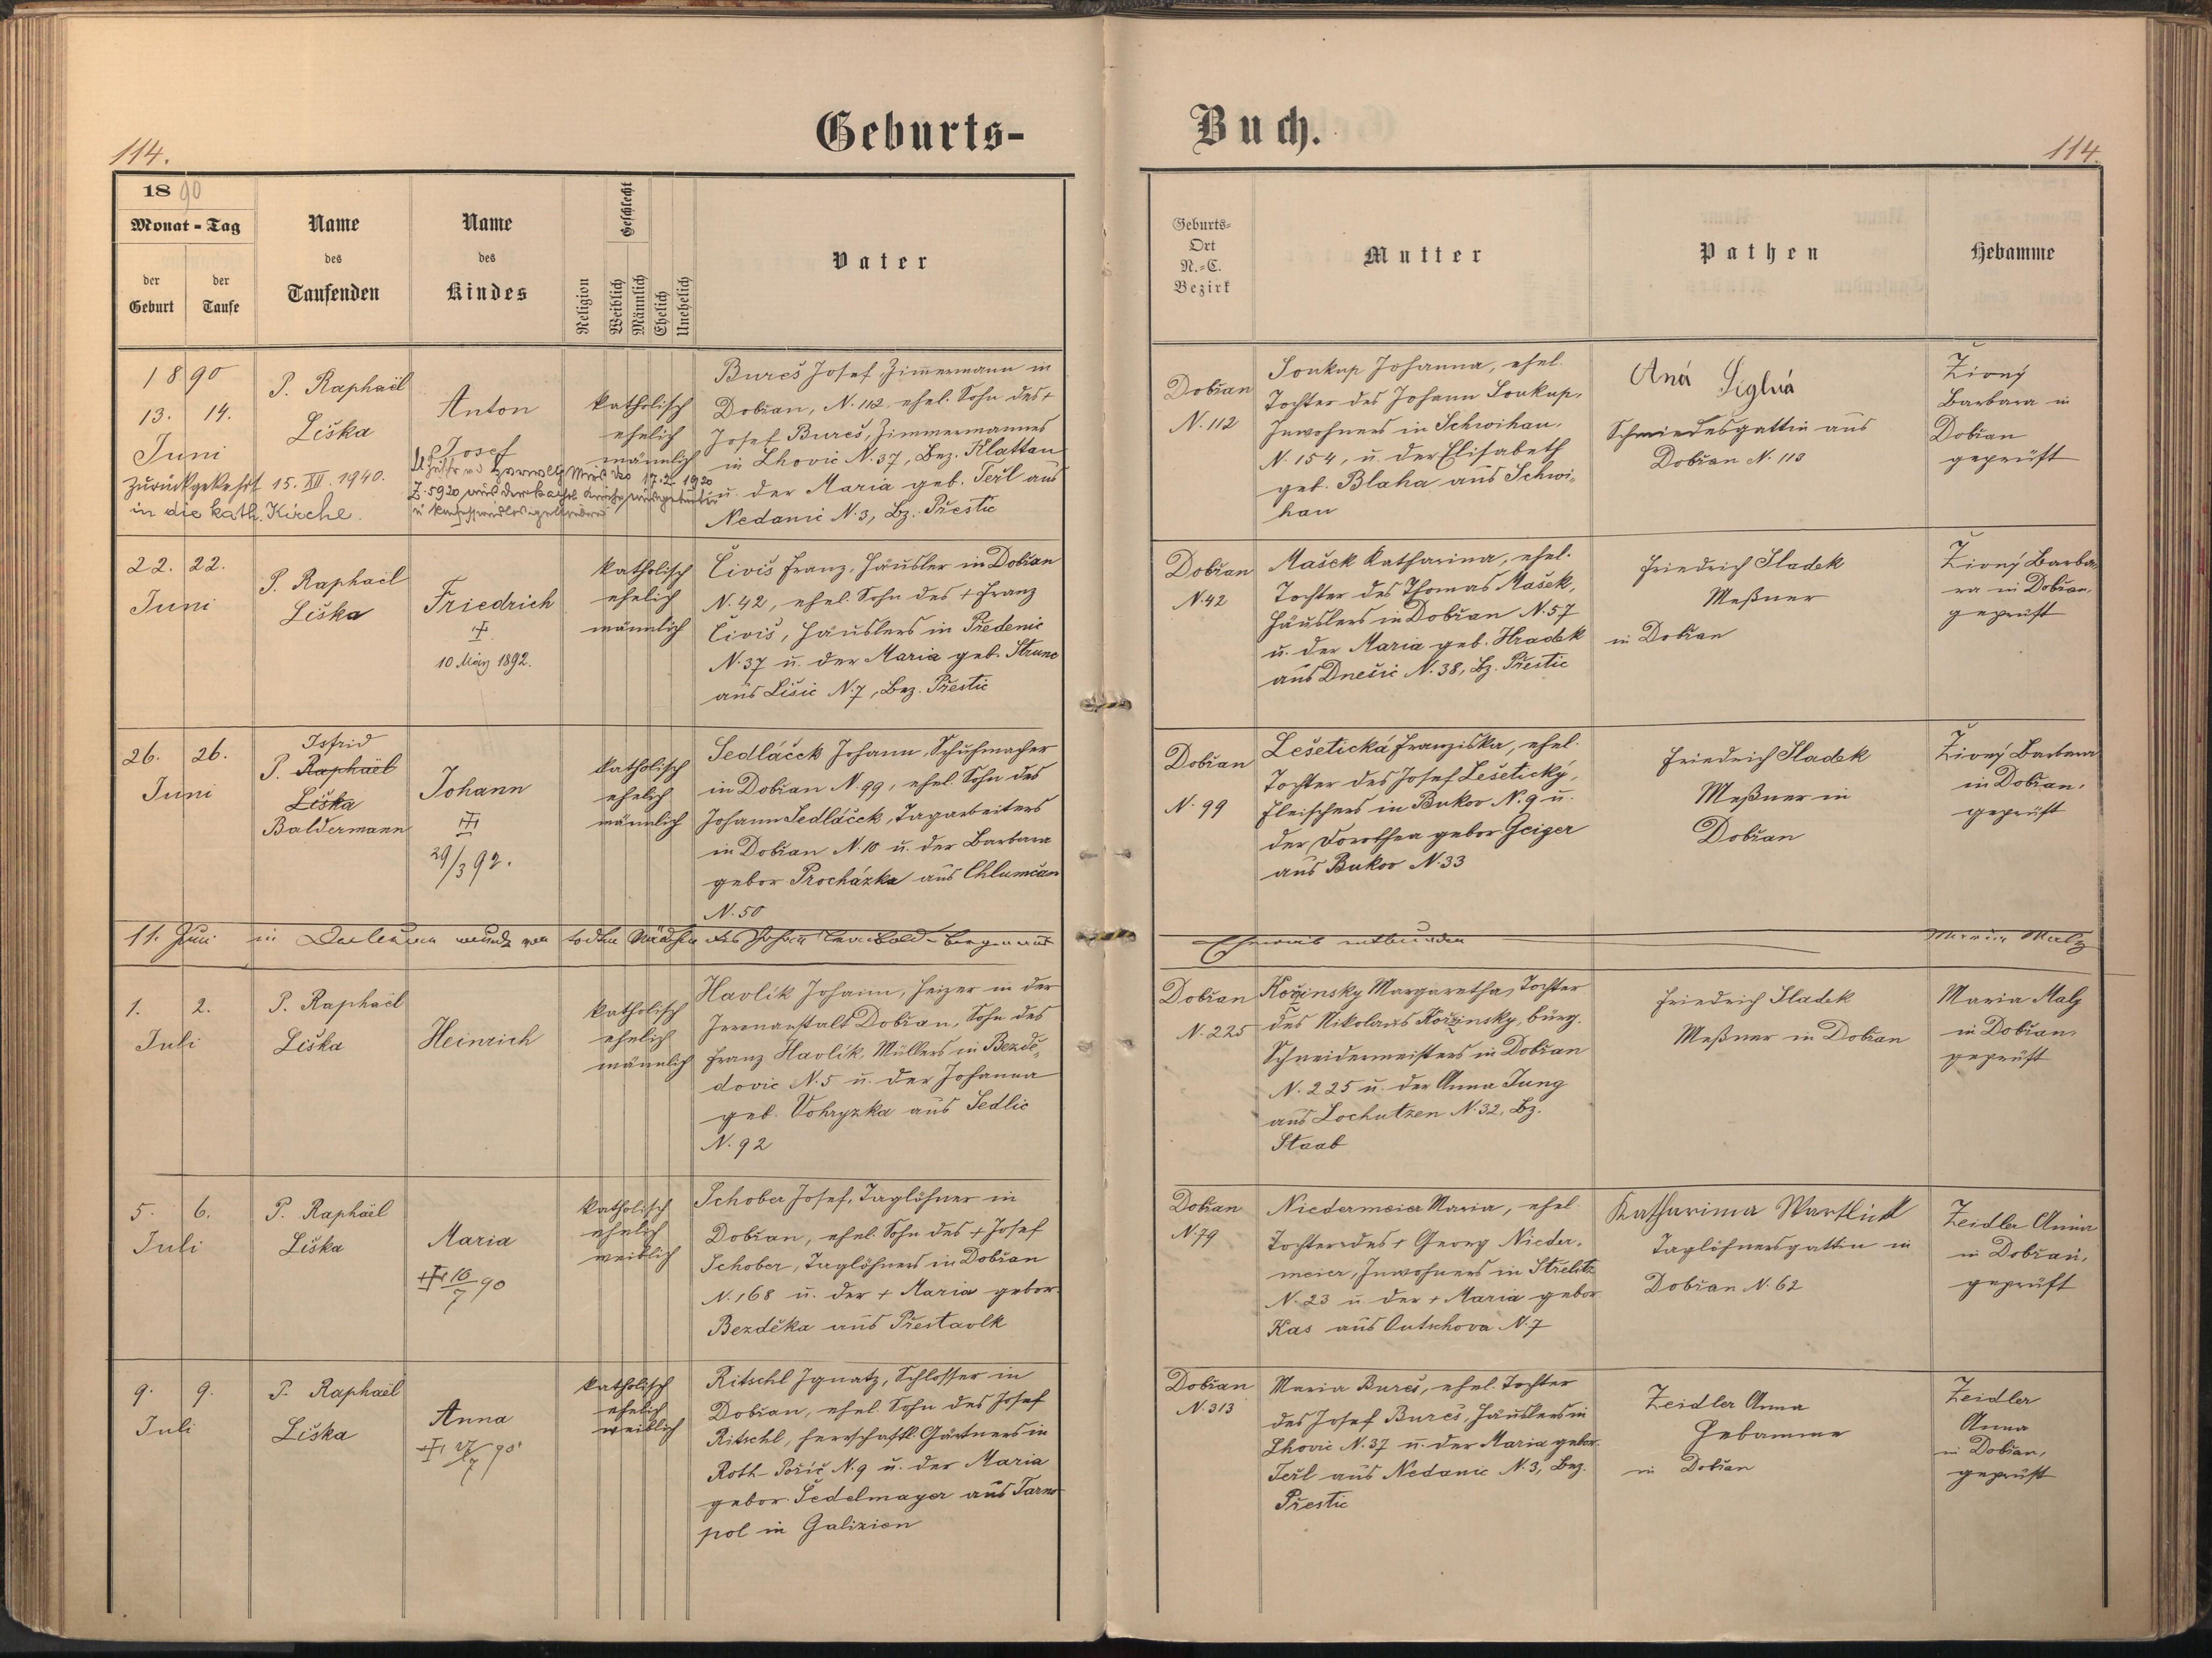 Geburts-
Buch.
114.
114.
1890
Monat - Tag
der Geburt
der Taufe
Name des Taufenden
Name des Kindes
Religion
Geschlecht
Weiblich
Männlich
Ehelich
Unehelich
Vater
Geburts-
Ort
N.-C.
Bezirk
Mutter
Pathen
Hebamme
1890
13. 14.
Juni
zurückgekehrt 15. XII. 1940.
in die kath. Kirche.
P. Raphaël
Liška
Anton
Josef
17.2.1920
Z. 5920 aus der kathol. Kirche ausgetreten
katholisch
ehelich
männlich
Bureš Josef, Zimmermann in
Dobřan, N. 112, ehel. Sohn des +
Josef Bureš, Zimmermannes
in Lhovic N. 37, Bez. Klattau
u. der Maria geb. Teřl aus
Nedanic N. 3, Bz. Přestic
Dobřan
N. 112
Soukup Johanna, ehel.
Tochter des Johann Soukup,
Inwohners in Schwihau,
N. 154, u. der Elisabeth
geb. Blaha aus Schwi-
hau
Schmiedesgattin aus
Dobřan N. 113
Živný
Barbara in
Dobřan
geprüft
22. 22.
Juni
P. Raphaël
Liška
Friedrich
+
10 März 1892.
katholisch
ehelich
männlich
Čiviš Franz, Häusler in Dobřan
N. 42, ehel. Sohn des + Franz
Čiviš, Häuslers in Předenic
N. 37 u. der Maria geb. Strunc
aus Lišic N. 7, Bez. Přestic
Dobřan
N. 42
Mašek Katharina, ehel.
Tochter des Thomas Mašek,
Häuslers in Dobřan N. 57
u. der Maria geb. Hradek
aus Dnešic N. 38, Bz. Přestic
Friedrich Sladek
Meßner
in Dobřan
Živný Barba-
ra in Dobřan,
geprüft
26. 26.
Juni
Isfrid
P. Raphaël
Liška
Baldermann
Johann
29/3 92.
katholisch
ehelich
männlich
Sedláček Johann, Schuhmacher
in Dobřan N. 99, ehel. Sohn des
Johann Sedláček, Tagarbeiters
in Dobřan N. 10 u. der Barbara
gebor Procházka aus Chlumčan
N. 50
Dobřan
N. 99
Lešetická Franziska, ehel.
Tochter des Josef Lešetický,
Fleischers in Bukov N. 9 u.
der Dorothea gebor. Geiger
aus Bukov N. 33
Friedrich Sladek
Meßner in
Dobřan
Živný Barbara
in Dobřan,
geprüft
11. Juni in
entbunden
1. 2.
Juli
P. Raphaël
Liška
Heinrich
katholisch
ehelich
männlich
Havlík Johann, Heizer in der
Irrenanstalt Dobřan, Sohn des
Franz Havlík, Müllers in Bezdě-
dovic N. 5 u. der Johanna
geb. Vohryzka aus Sedlic
N. 92
Dobřan
N. 225
Kořinsky Margaretha, Tochter
des Nikolaus Kořinsky, bürg.
Schneidermeisters in Dobřan
N. 225 u. der Anna Jung
aus Lochutzen N. 32, Bz.
Staab
Friedrich Sladek
Meßner in Dobřan
Maria Malz
in Dobřan,
geprüft
5. 6.
Juli
P. Raphaël
Liška
Maria
+ 10/7 90
katholisch
ehelich
weiblich
Schober Josef, Taglöhner in
Dobřan, ehel. Sohn des + Josef
Schober, Taglöhners in Dobřan
N. 168 u. der + Maria gebor.
Bezděka aus Přestavlk
Dobřan
N. 79
Niedermeier Maria, ehel.
Tochter des + Georg Nieder-
meier, Inwohners in Střelitz
N. 23 u. der + Maria gebor.
Kas aus Autschova N. 7
Katharina
Taglöhnersgattin in
Dobřan N. 62
Zeidler Anna
in Dobřan,
geprüft
9. 9.
Juli
P. Raphaël
Liška
Anna
+ 27/7 90
katholisch
ehelich
weiblich
Ritschl Ignatz, Schlosser in
Dobřan, ehel. Sohn des Josef
Ritschl, herrschaftl. Gärtners in
Roth-Pořič N. 9 u. der Maria
gebor. Sedelmayer aus Tarno-
pol in Galizien
Dobřan
N. 313
Maria Bureš, ehel. Tochter
des Josef Bureš, Häuslers in
Lhovic N. 37 u. der Maria gebor.
Teřl aus Nedanic N. 3, Bez.
Přestic
Zeidler Anna
Hebamme
in Dobřan
Zeidler
Anna
in Dobřan,
geprüft